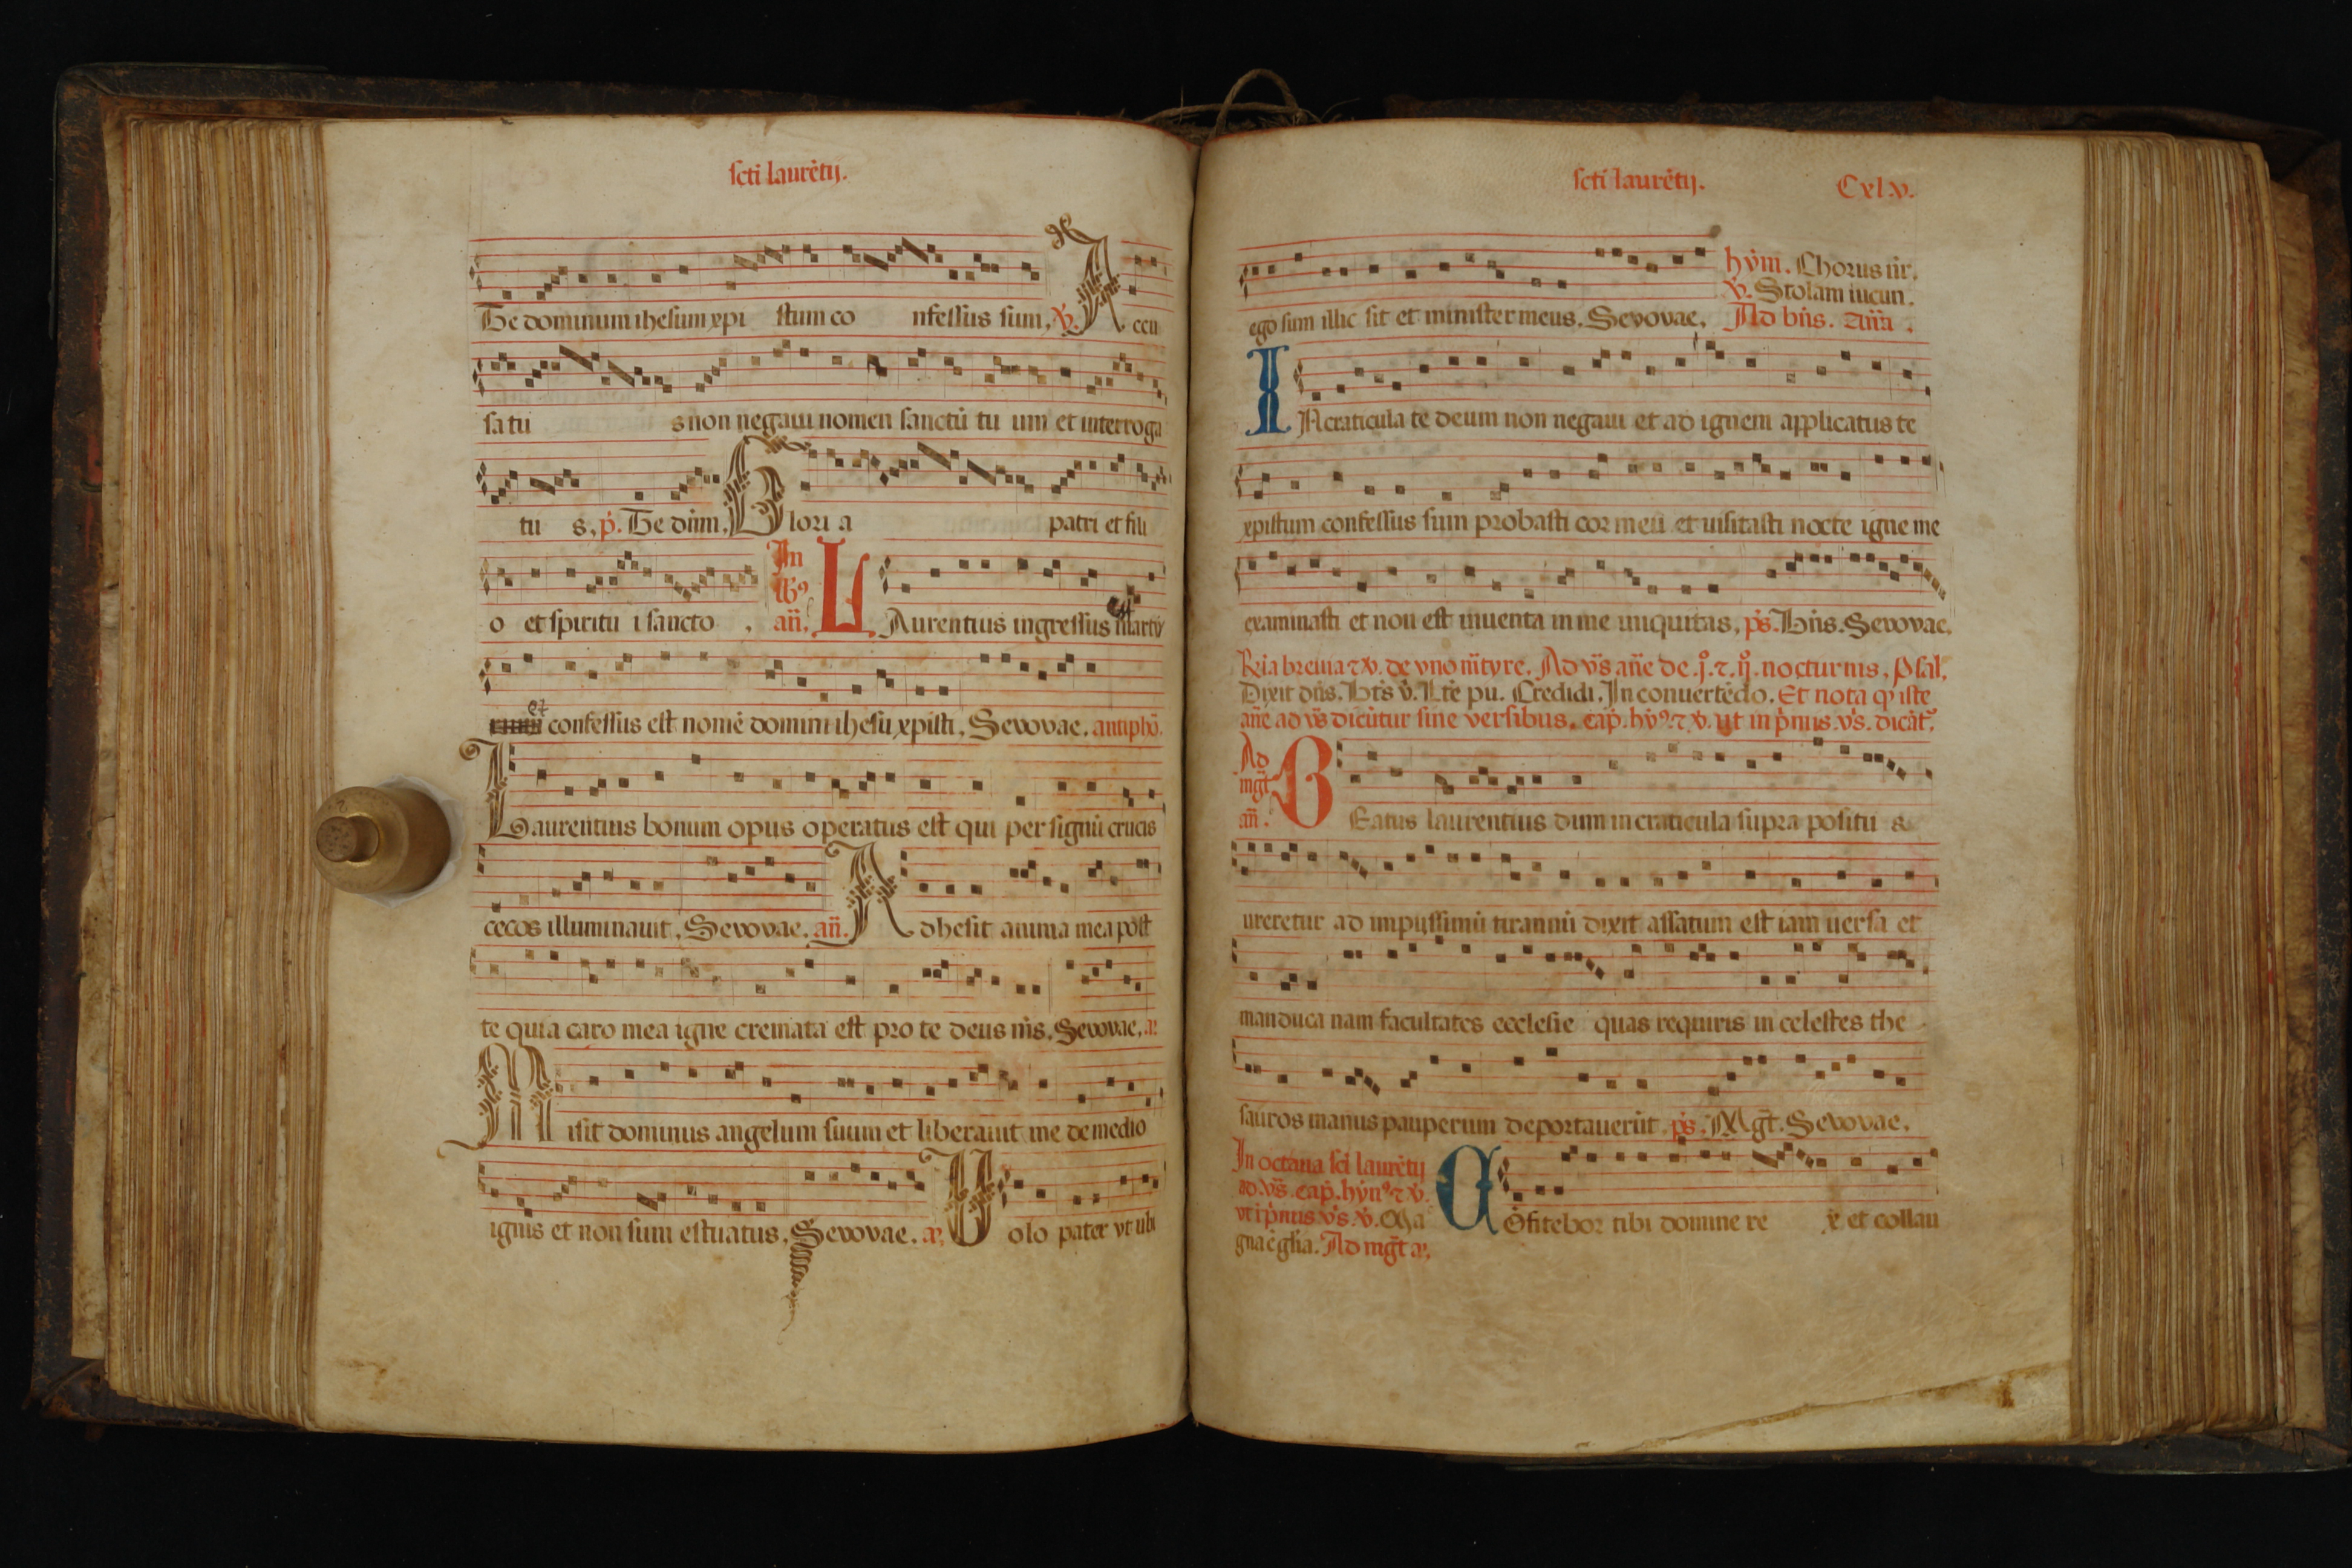 sctı̇ laurẽtij.
Te dominum ihesum xpi stum co nfessus sum, ꝟ. A ccu
sa tu s non negaui nomen sanctũ tu um et interroga
tu s. p̃. Te dñm. Glori a patri et fili
o et spiritu i sancto .
In
an̄. LAurentius ingressus est martir
et confessus est nomẽ domini ihesu xpisti. Sevovae. antiphõ.
Laurentius bonum opus operatus est qui per signũ crucis
cecos illuminauit. Sevovae. an̄. Adhesit anima mea post
te quia caro mea igne cremata est pro te deus m̃s. Sevovae. a.
Misit dominus angelum suum et liberauit me de medio
ignis et non sum estuatus. Sevovae. a. Uolo pater vt ubi
sctı̇ laurẽtij. Cxlv.
hỹm̃. Chorus n̄r.
ꝟ. Stolam iucun.
ego sum illic sit et minister meus. Sevovae. Ad bñs. añа.
IN craticula te deum non negaui et ad ignem applicatus te
xpistum confessus sum probasti cor meũ et uisitasti nocte igne me
examinasti et non est inuenta in me iniquitas. p̃s. Bñs. Sevovae.
Rͥa breuia ⁊ ꝟ. de vno m̃tyre. Ad vs̃ añe de .j̊. ⁊ .ij̊. nocturnis. Psal.
Dixit dñs. Bt̃s v̇. Lt̃e pu. Credidi. In conuertẽdo. Et nota q̃ iste
añe ad vs̃ dicũtur sine versibus. cap̃. hỹ⁹. ⁊ ꝟ. ut in p̃mis vs̃. dicãt᷑.
Ad
mgt̃
an̄. BEatus laurentius dum in craticula supra positu s
ureretur ad impijssimũ tirannũ dixit assatum est iam uersa et
manduca nam facultates ecclesie quas requiris in celestes the
sauros manus pauperum deportauerũt. p̃s. Mgt̃. Sevovae.
In octaua scı̇ laurẽtij
ad vs̃. cap̃. hỹn⁹ ⁊ ꝟ.
vt i p̃mis vs̃. ꝟ. Ma
gna ẽ gl̃ia. Ad mgt̃ a.
Cõfitebor tibi domine re x et collau